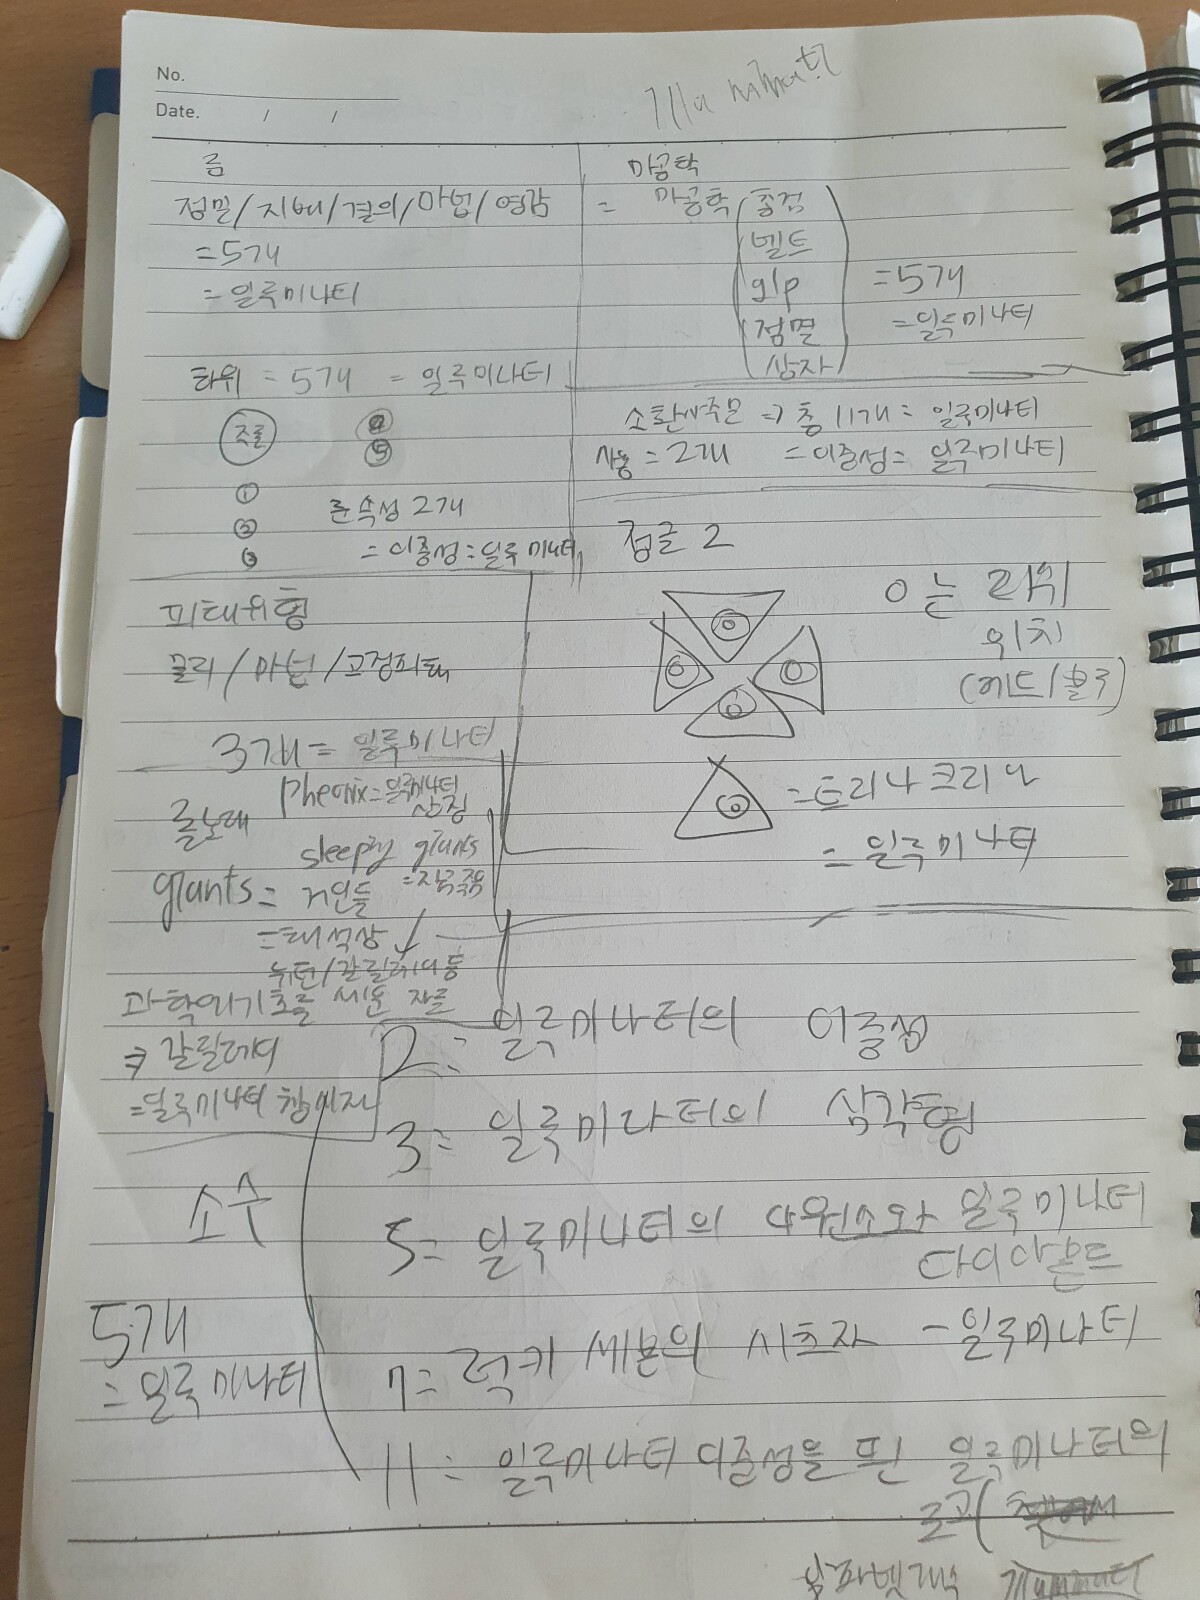 No.
Date. / /
룬
정밀/지배/결의/마법/영감
=5개
=일루미나티
타워 = 5개 = 일루미나티
①
②
③
④
⑤
룬 속성 2개
=이중성=일루미나티
마공학
= 마공학(총검
벨트
glp
점멸
상자)
=5개
=일루미나티
소환사주문 => 총 11개 = 일루미나티
사용 = 2개 =이중성= 일루미나티
피해유형
물리/마법/고정피해
3개= 일루미나티
정글 2
0 는
위치
=트리나크리아
= 일루미나티
롤노래
pheonix=일루미나티
상징
sleepy giants
giants = 거인들
=대석상
뉴턴/갈릴레이 등
과학의 기초를 세운 자들
=> 갈릴레이
=일루미나티 창시자
소수
5개
=일루미나티
2= 일루미나티의 이중성
3= 일루미나티의 삼각형
5= 일루미나티의 다원소와 일루미나티
다이아몬드
7= 럭키 세븐의 시초자 - 일루미나티
11= 일루미나티 이중성을 띈 일루미나티의
로고(
알파벳개수